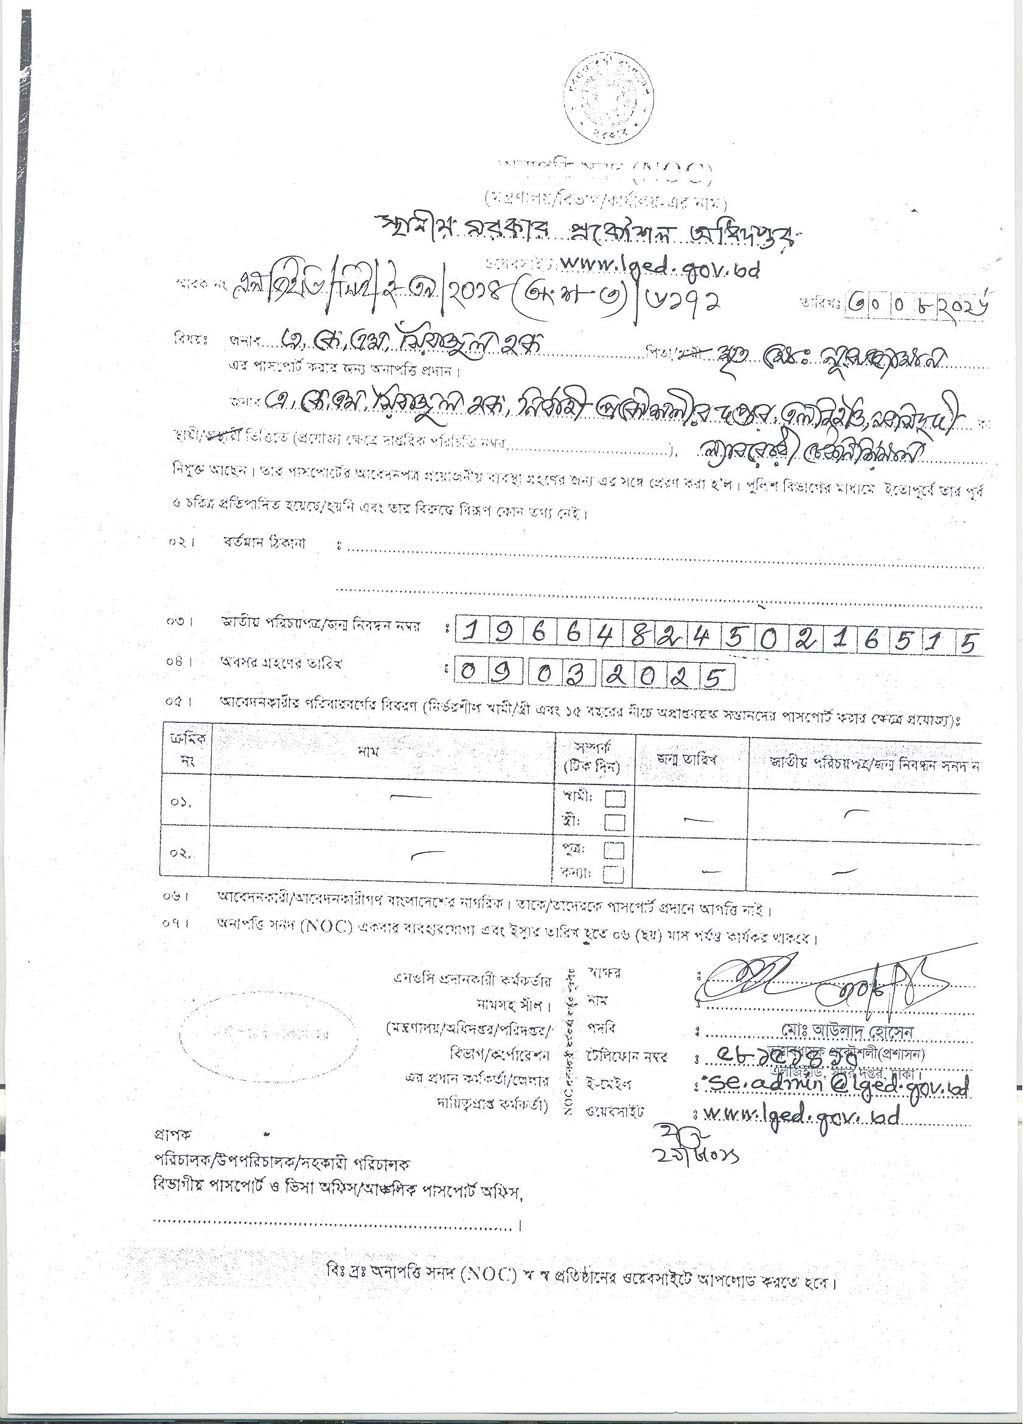 অনাপত্তি সনদ (NOC)
(মন্ত্রণালয়/বিভাগ/কার্যালয়-এর নাম)
স্থানীয় সরকার প্রকৌশল অধিদপ্তর
ওয়েবসাইট: www.lged.gov.bd
স্মারক নং এলজিইডি/সিই/ই-এন/২০১৪ (অংশ-৩)/৬১৭২ তারিখঃ ৩০ ০৮ ২০২১
বিষয়ঃ জনাব এ, কে, এম, সিরাজুল হক পিতা/স্বামী মৃত মোঃ নূরুজ্জামান
এর পাসপোর্ট করার জন্য অনাপত্তি প্রদান।
জনাব এ, কে, এম, সিরাজুল হক, নির্বাহী প্রকৌশলীর দপ্তর, এলজিইডি, নরসিংদী
স্থায়ী/অস্থায়ী ভিত্তিতে (প্রযোজ্য ক্ষেত্রে দাপ্তরিক পরিচিতি নম্বর ), ল্যাবরেটরী টেকনিশিয়ান
নিযুক্ত আছেন। তার পাসপোর্টের আবেদনপত্র প্রয়োজনীয় ব্যবস্থা গ্রহণের জন্য এর সঙ্গে প্রেরণ করা হ'ল। পুলিশ বিভাগের মাধ্যমে ইতোপূর্বে তার পূর্ব
ও চরিত্র প্রতিপাদিত হয়েছে/হয়নি এবং তার বিরুদ্ধে বিরূপ কোন তথ্য নেই।
০২। বর্তমান ঠিকানা :
০৩। জাতীয় পরিচয়পত্র/জন্ম নিবন্ধন নম্বর : 1966482450216515
০৪। অবসর গ্রহণের তারিখ : 09032025
০৫। আবেদনকারীর পরিবারবর্গের বিবরণ (নির্ভরশীল স্বামী/স্ত্রী এবং ১৫ বছরের নীচে অপ্রাপ্তবয়স্ক সন্তানদের পাসপোর্ট করার ক্ষেত্রে প্রযোজ্য)ঃ
ক্রমিক নং নাম সম্পর্ক (টিক দিন) জন্ম তারিখ জাতীয় পরিচয়পত্র/জন্ম নিবন্ধন সনদ ন
০১. স্বামী:
স্ত্রী:
০২. পুত্র:
কন্যা:
০৬। আবেদনকারী/আবেদনকারীগণ বাংলাদেশের নাগরিক। তাকে/তাদেরকে পাসপোর্ট প্রদানে আপত্তি নাই।
০৭। অনাপত্তি সনদ (NOC) একবার ব্যবহারযোগ্য এবং ইস্যুর তারিখ হতে ০৬ (ছয়) মাস পর্যন্ত কার্যকর থাকবে।
এনওসি প্রদানকারী কর্মকর্তার স্বাক্ষর :
নামসহ সীল। নাম :
(মন্ত্রণালয়/অধিদপ্তর/পরিদপ্তর/ পদবি : মোঃ আউলাদ হোসেন
তত্ত্বাবধায়ক প্রকৌশলী(প্রশাসন)
বিভাগ/কর্পোরেশন টেলিফোন নম্বর :
এলজিইডি, সদর দপ্তর, ঢাকা।
এর প্রধান কর্মকর্তা/জেলার ই-মেইল : se.admin@lged.gov.bd
দায়িত্বপ্রাপ্ত কর্মকর্তা) ওয়েবসাইট : www.lged.gov.bd
প্রাপক
পরিচালক/উপপরিচালক/সহকারী পরিচালক
বিভাগীয় পাসপোর্ট ও ভিসা অফিস/আঞ্চলিক পাসপোর্ট অফিস,
।
বিঃ দ্রঃ অনাপত্তি সনদ (NOC) স্ব স্ব প্রতিষ্ঠানের ওয়েবসাইটে আপলোড করতে হবে।